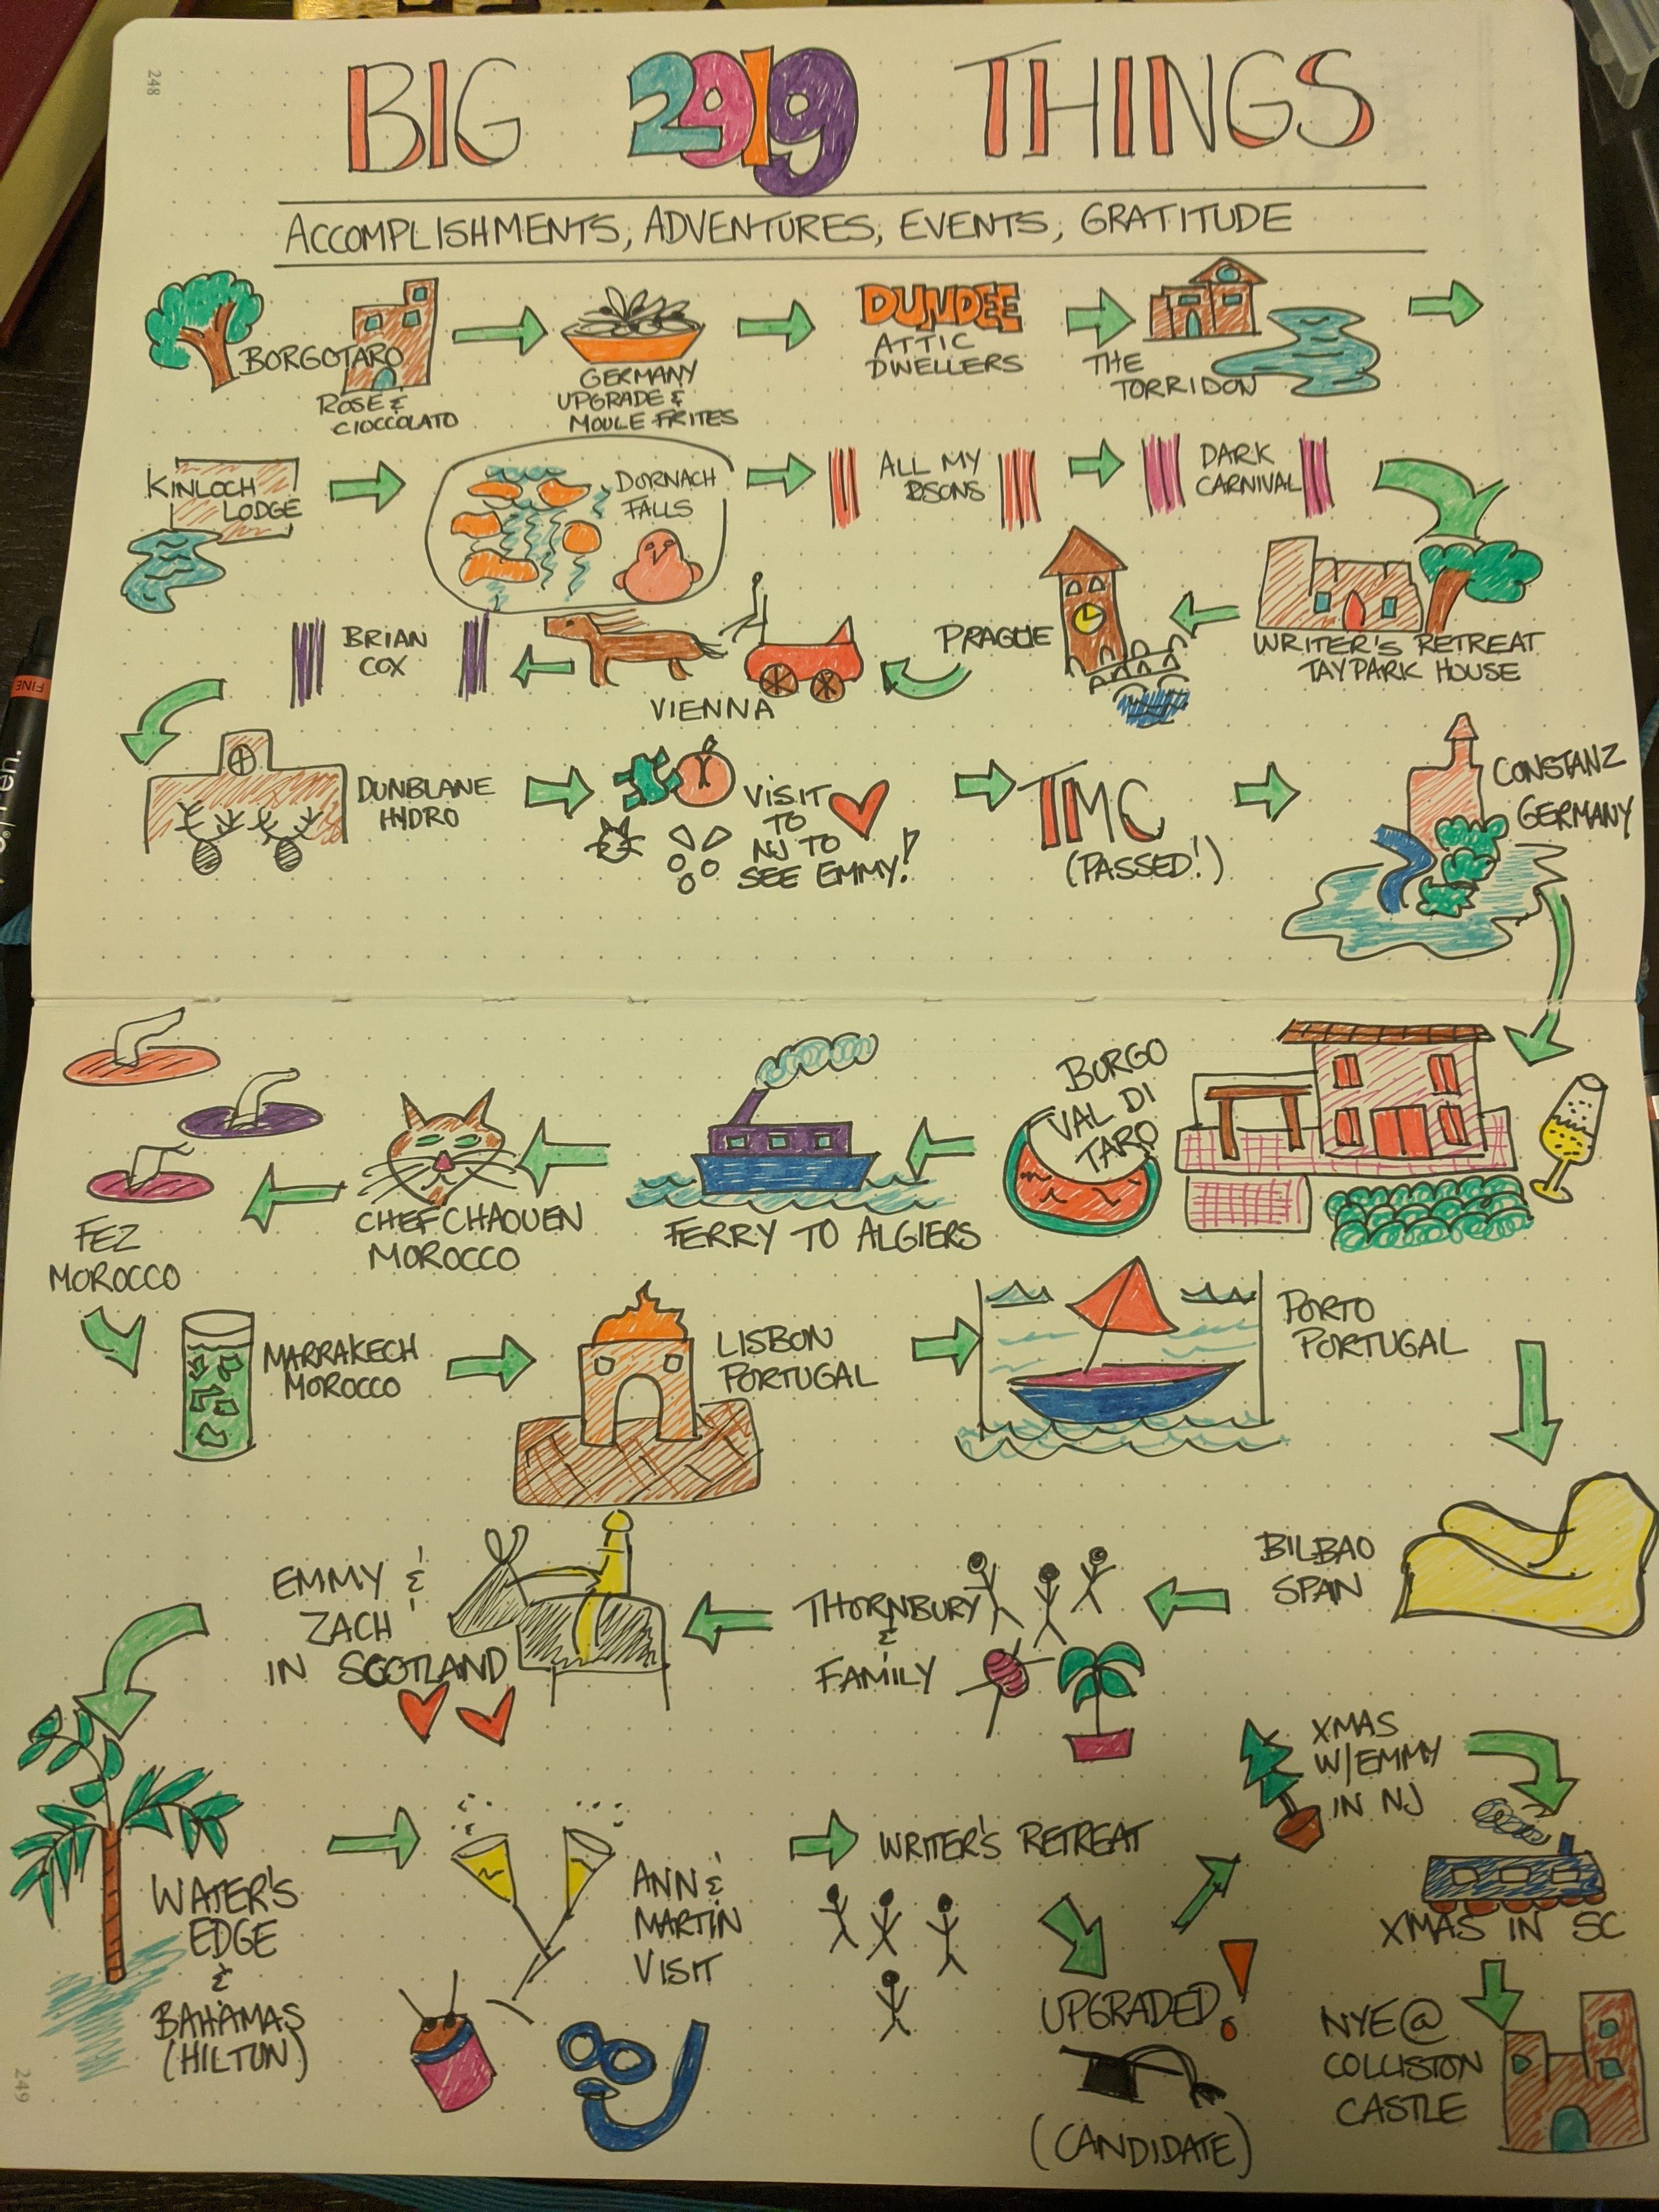 248
BIG 2019 THINGS
ACCOMPLISHMENTS, ADVENTURES, EVENTS, GRATITUDE
BORGOTARO
ROSE &
CIOCCOLATO
GERMANY
UPGRADE &
MOULE FRITES
DUNDEE
ATTIC
DWELLERS
THE
TORRIDON
KINLOCH
LODGE
DORNACH
FALLS
ALL MY
SONS
DARK
CARNIVAL
WRITER'S RETREAT
TAYPARK HOUSE
PRAGUE
VIENNA
BRIAN
COX
DUNBLANE
HYDRO
VISIT
TO
NJ TO
SEE EMMY!
TMC
(PASSED!)
CONSTANZ
GERMANY
BORGO
VAL DI
TARO
FERRY TO ALGIERS
CHEFCHAOUEN
MOROCCO
FEZ
MOROCCO
MARRAKECH
MOROCCO
LISBON
PORTUGAL
PORTO
PORTUGAL
BILBAO
SPAN
THORNBURY
&
FAMILY
EMMY &
ZACH
IN SCOTLAND
WATER'S
EDGE
&
BAHAMAS
(HILTON)
ANN &
MARTIN
VISIT
WRITER'S RETREAT
UPGRADED!
(CANDIDATE)
XMAS
W/EMMY
IN NJ
XMAS IN SC
NYE @
COLLISTON
CASTLE
249
FINE
en.